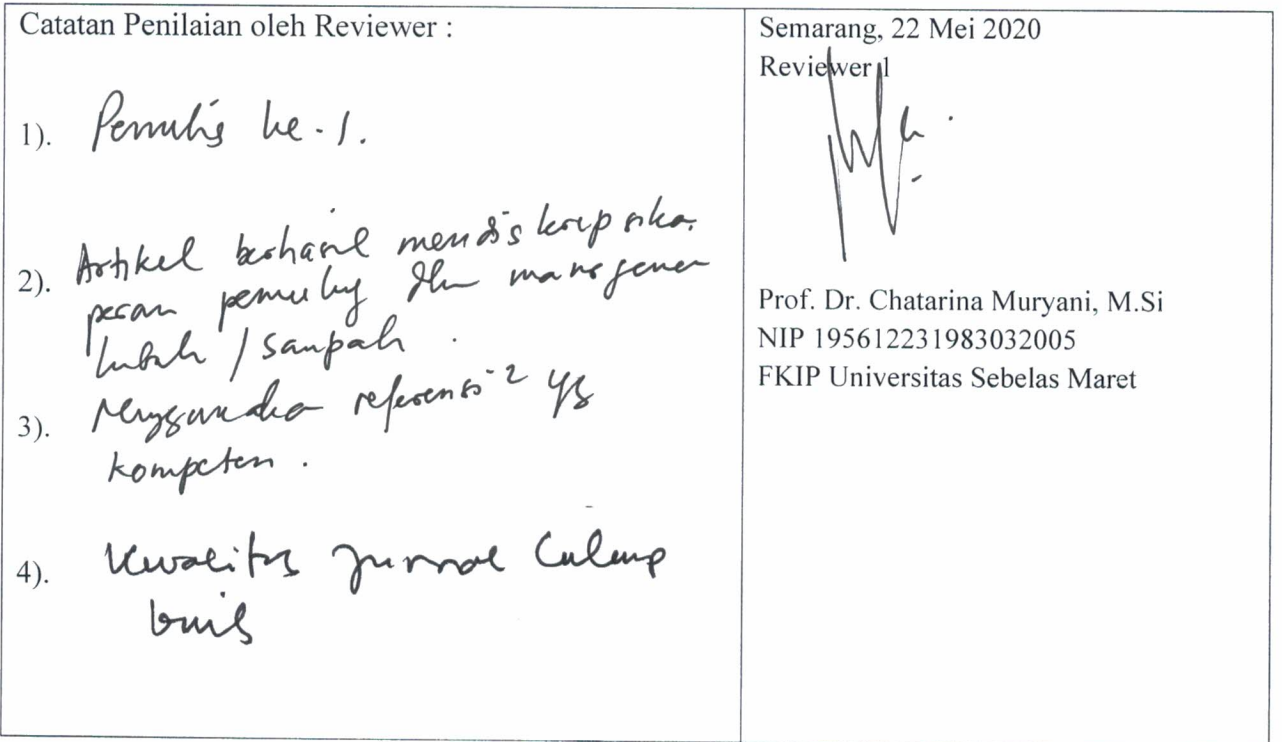 Catatan Penilaian oleh Reviewer :
1). Penulis ke-1.
2). Artikel berhasil mendiskripsika
peran pemulung dlm managemen
limbah / sampah.
3). Menggunaka referensi-2 yg
kompeten.
4). Kwalitas jurnal Cukup
baik
Semarang, 22 Mei 2020
Reviewer 1
Prof. Dr. Chatarina Muryani, M.Si
NIP 195612231983032005
FKIP Universitas Sebelas Maret